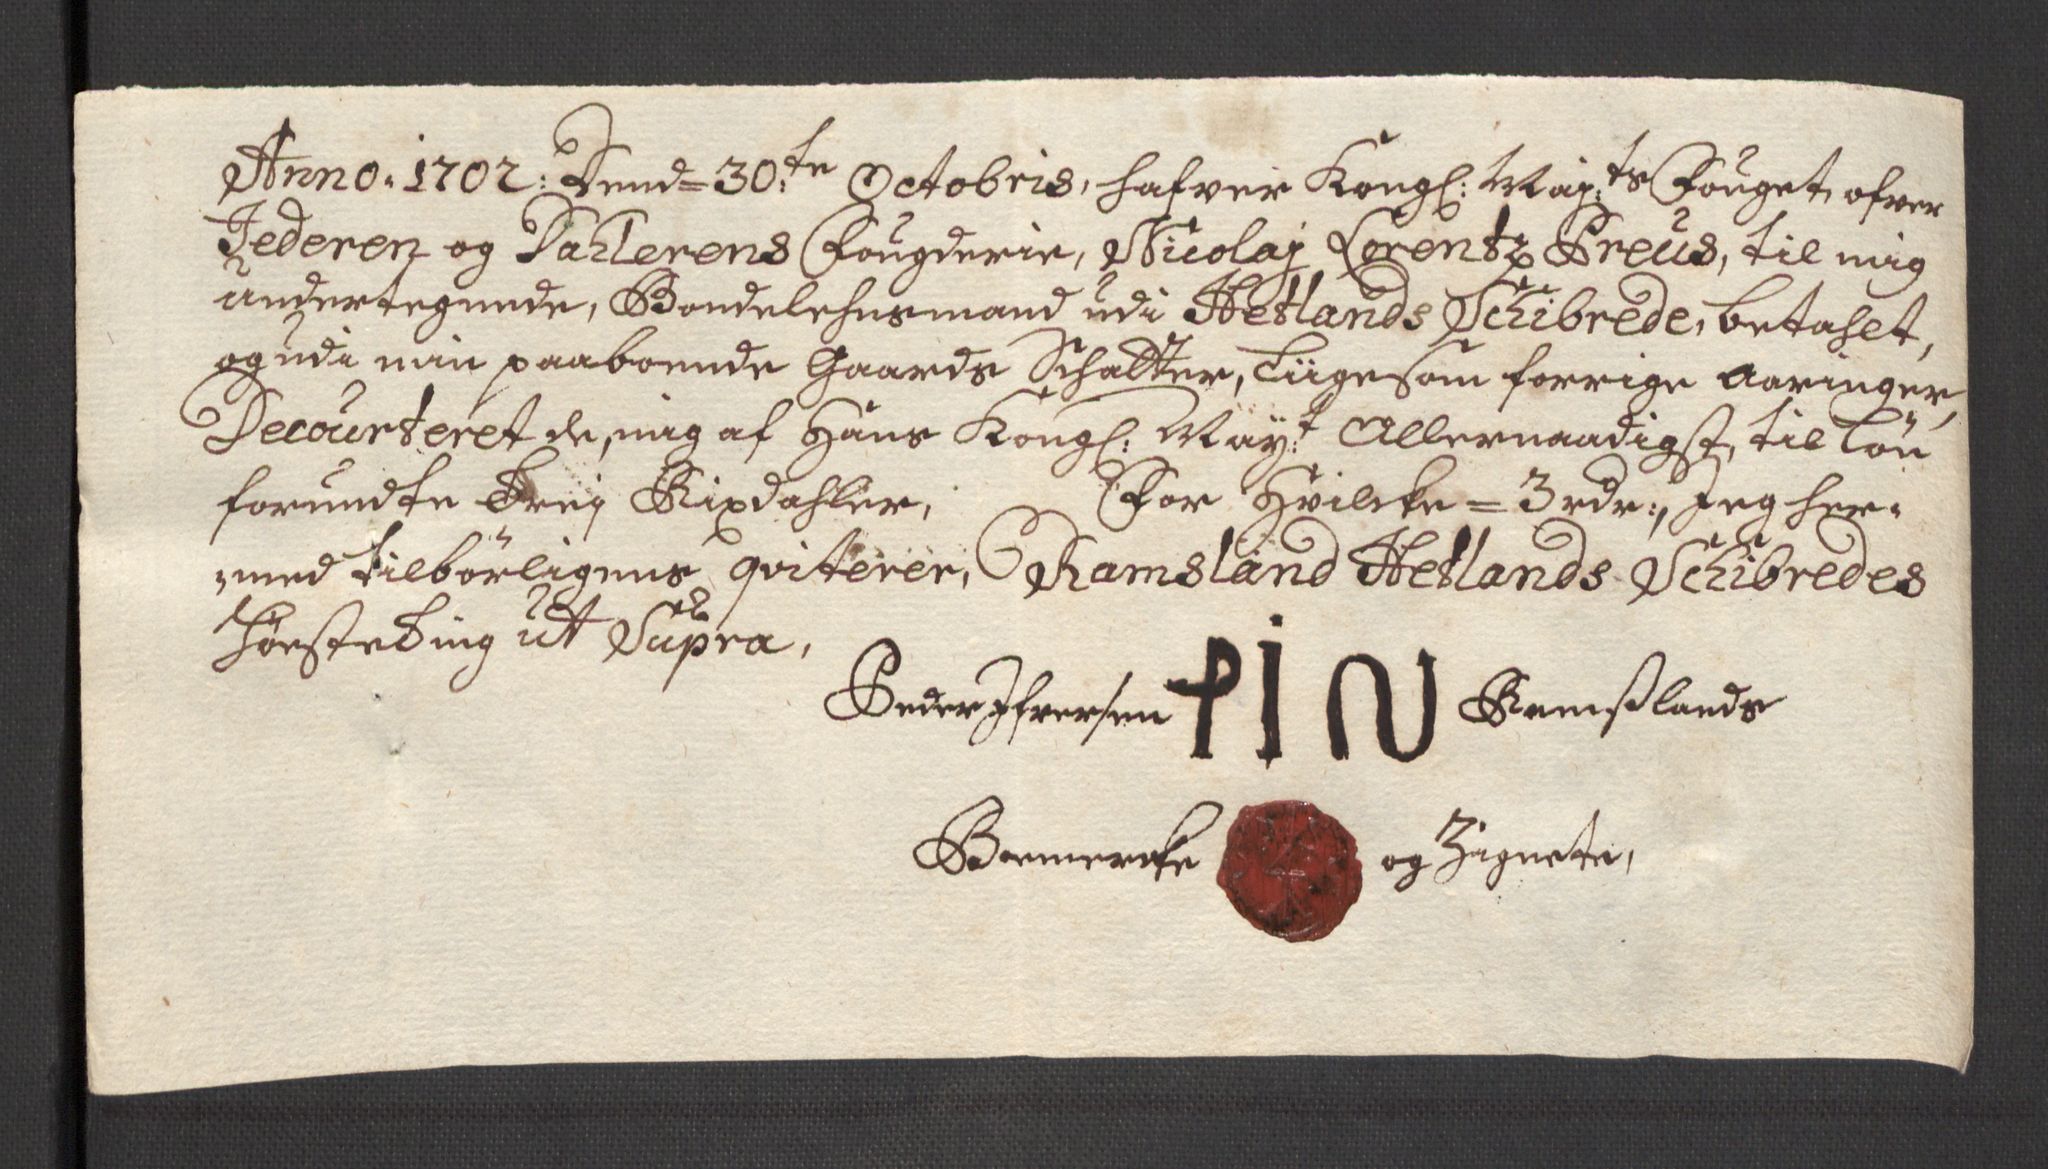 Anno. 1702: Dend= 30:te Octobris, hafver Kongl: Maj:ts Fouget, ofver
Jederen og Dahlerens Fougderie, Nicolaj Lorentz Preus, til mig
undertegnede, Bondelehnsmand udi Hetlands Schibrede, betahlt,
og udi min paaboende Gaards Schatter, Liigesom forrige Aaringer,
Decourteret de, mig af Hans Kongl: May:t Allernaadigst, til Løn
forundte Treij Rixdahler, For Hvilcke = 3 rdr:, Jeg her-
med tilbørligens qviterer, Ramsland Hetlands Schibredes
Høsteting ut Supra,
Peder Ifversen P I S Remßlands
Bomercke og Zignete,